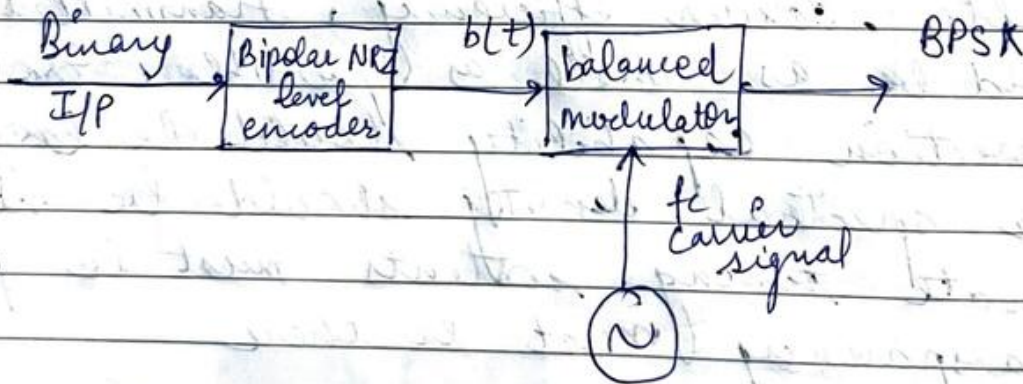 Binary
I/P
Bipolar NRZ
level
encoder
b(t)
balanced
modulator
BPSK
fc
carrier
signal